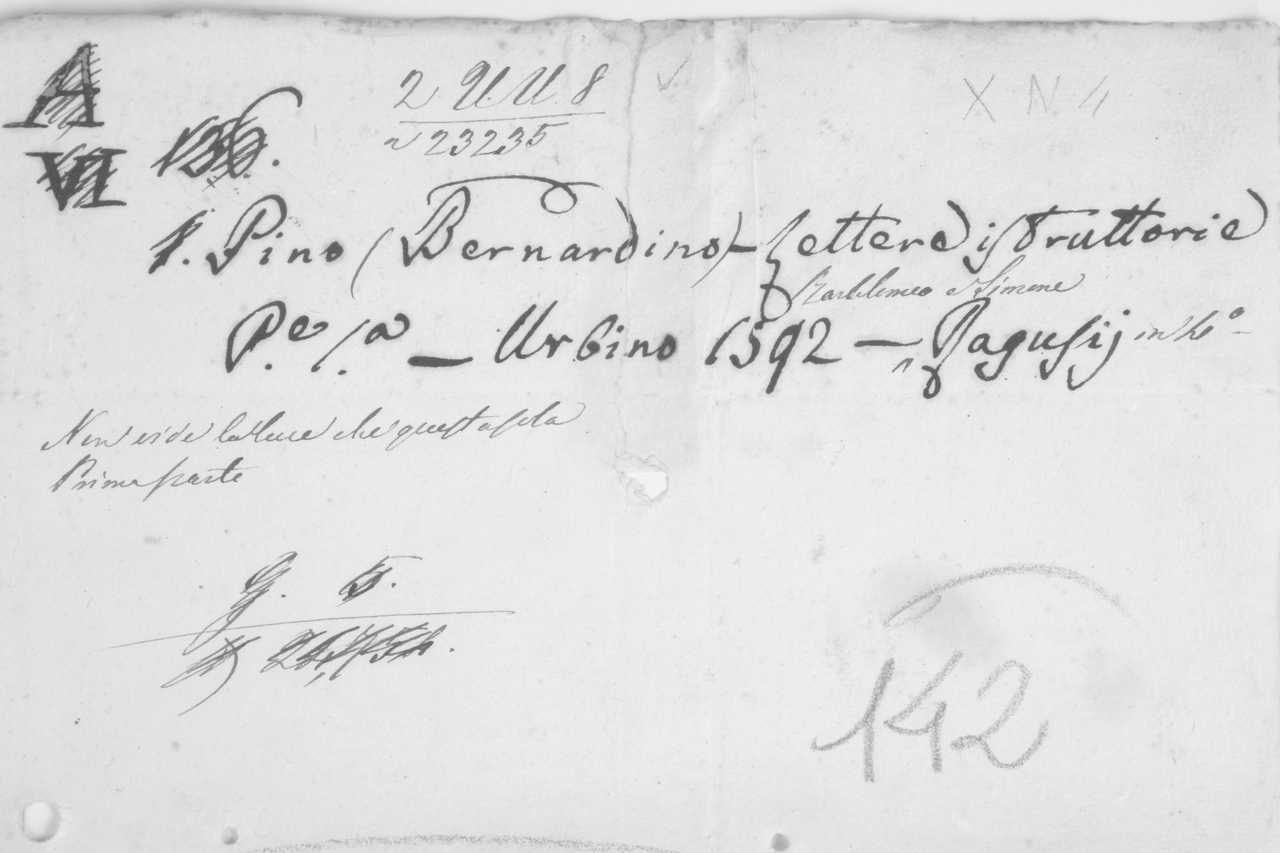 A
VI
136.
2 U.U. 8
23235
X N 4
1. Pino (Bernardino) - Lettere istruttorie
Bartolomeo e Simone
P.e 1.a - Urbino 1592 - Ragusij in 4°
Non vide la luce che questa sola
Prima parte
G. 5.
142